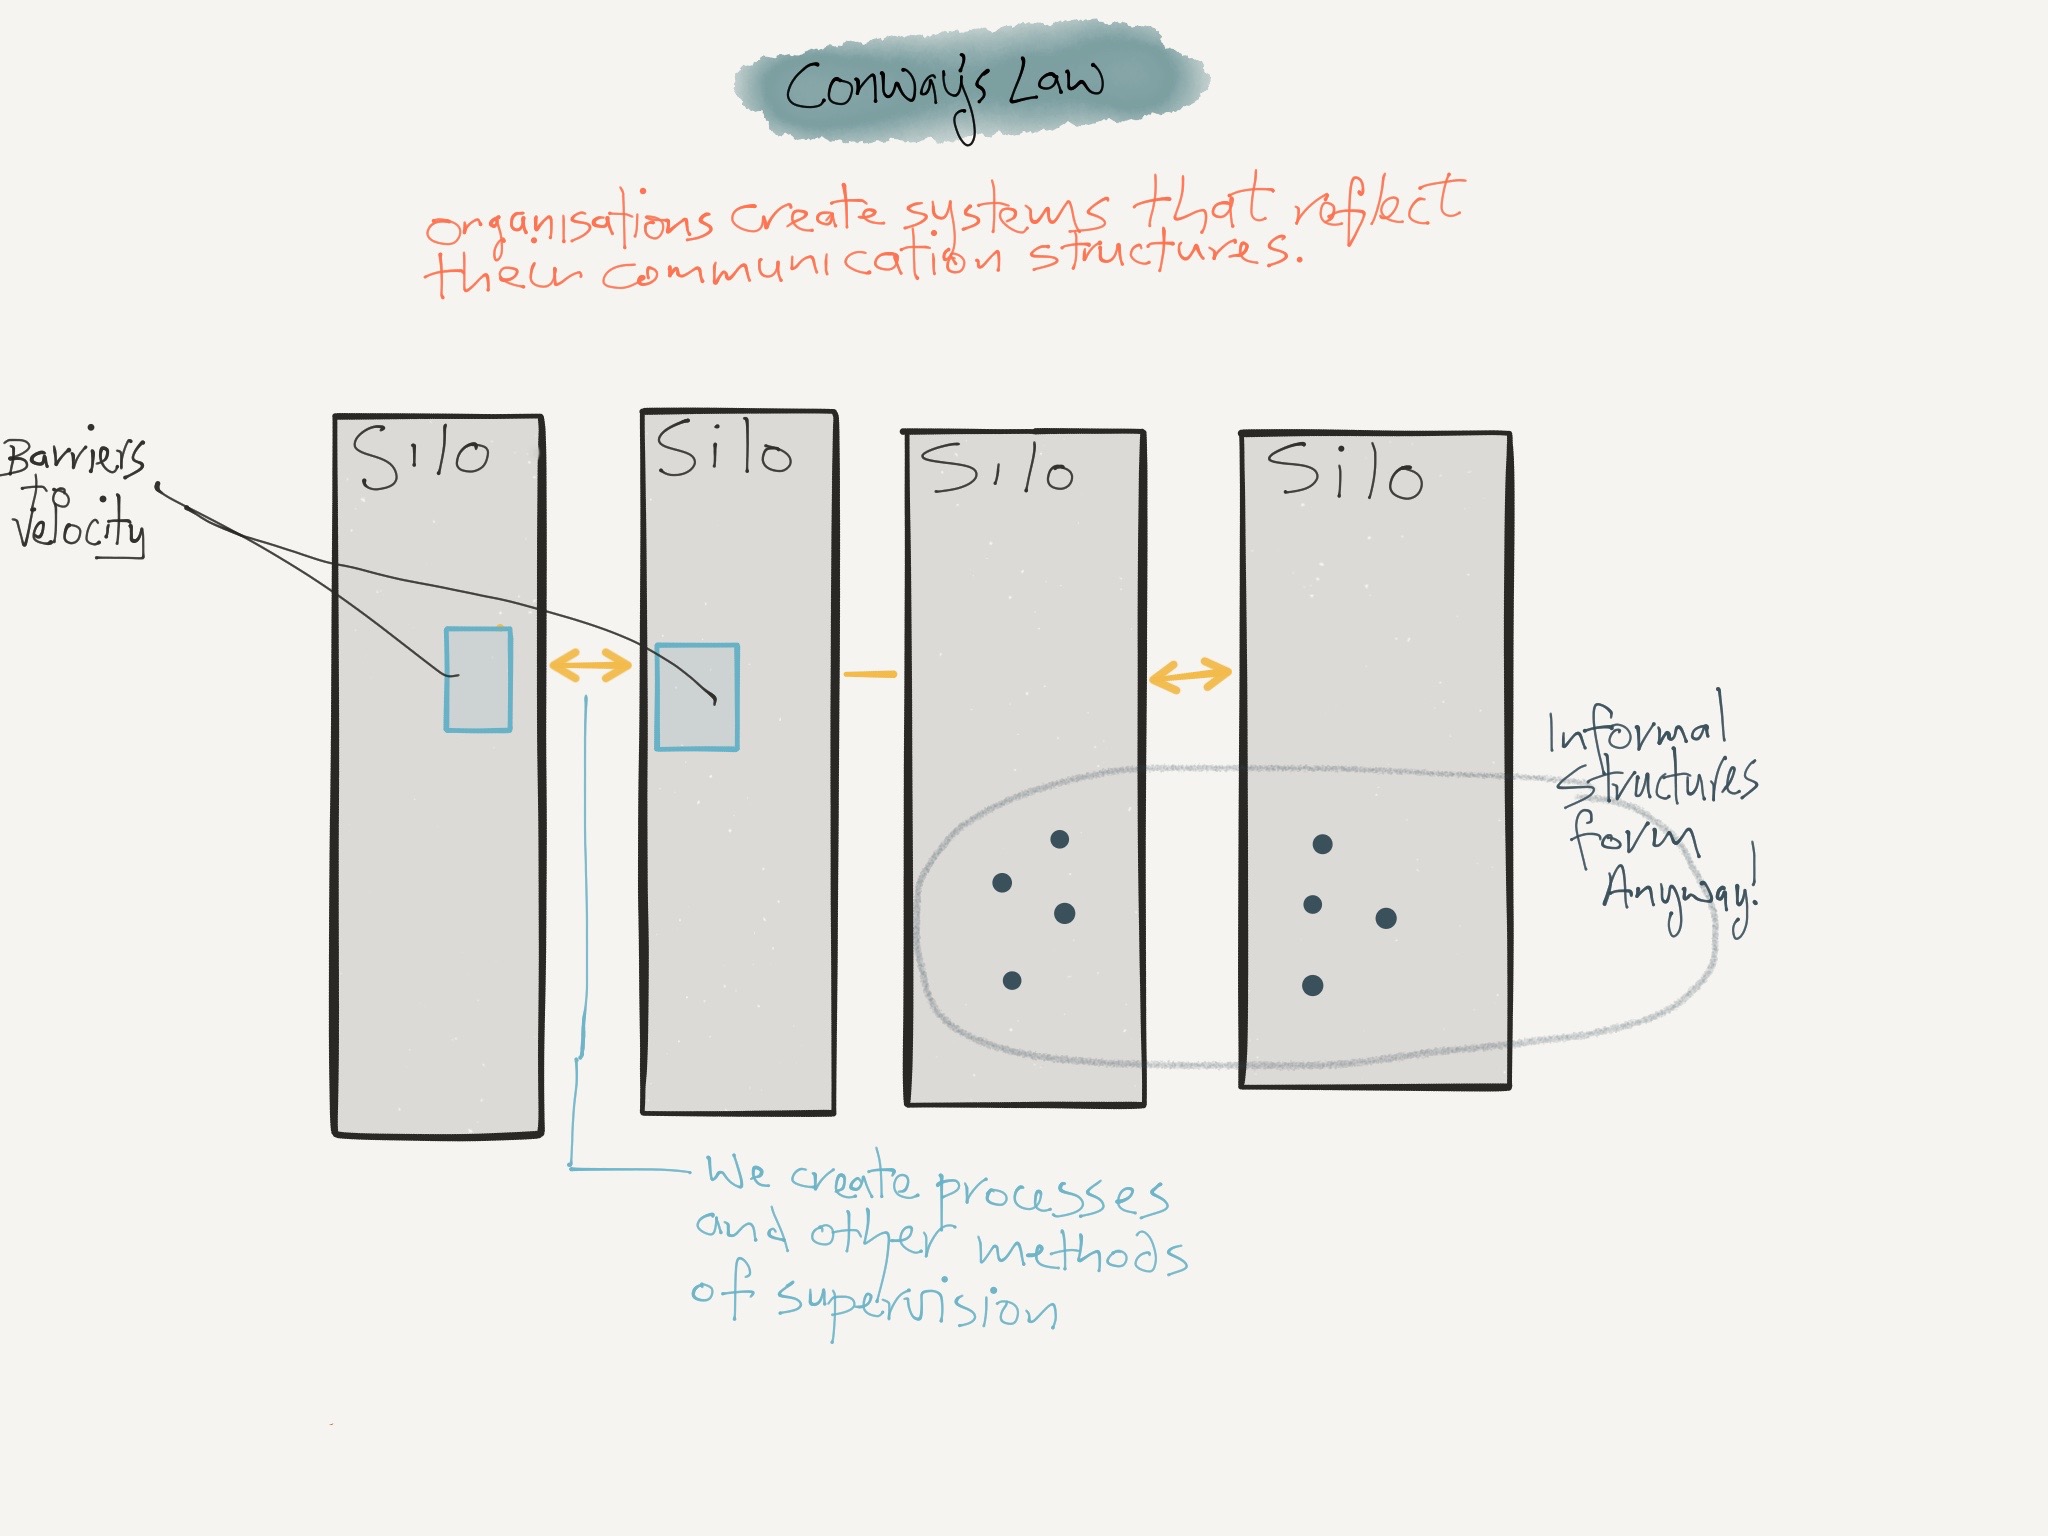 Conway's Law
organisations create systems that reflect
their communication structures.
Barriers
to
velocity
Silo
Silo
Silo
Silo
Informal
structures
form
Anyway!
We create processes
and other methods
of supervision